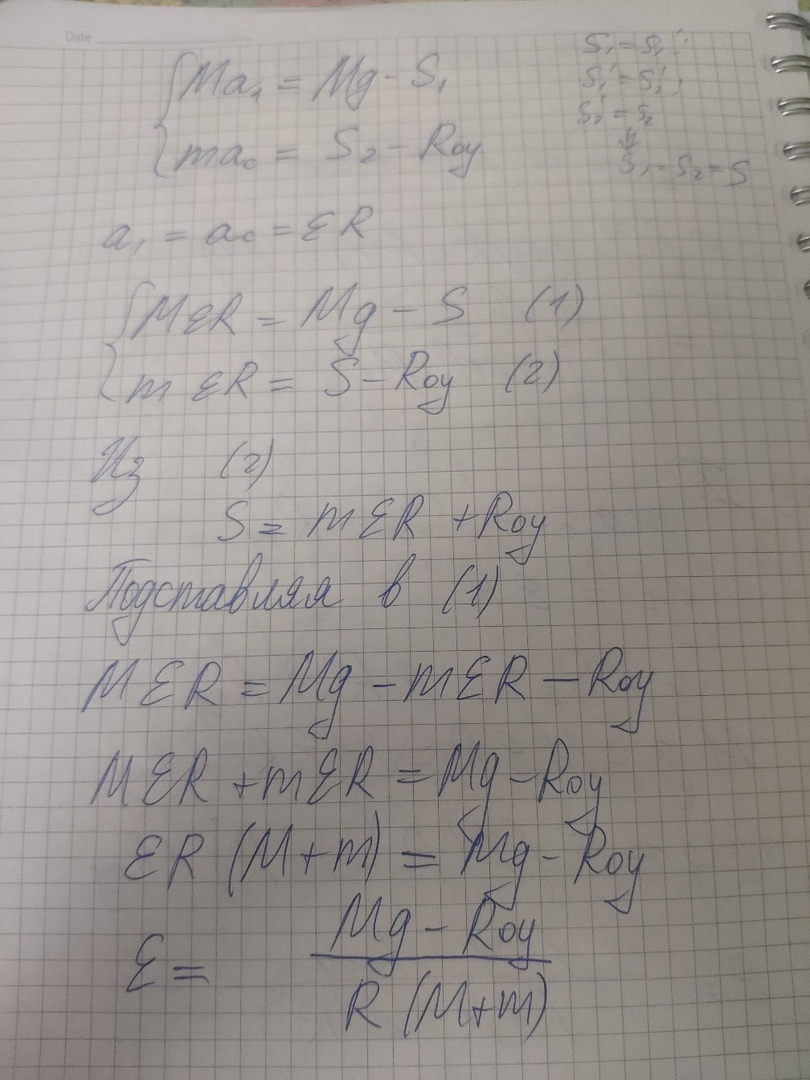 Date
{ Ma₁ = Mg - S₁
ma_c = S₂ - Roy
S₁ = S₁''
S₁' = S₂'
S₂' = S₂
⇓
S₁ = S₂ = S
a₁ = a_c = ƐR
{ MƐR = Mg - S (1)
mƐR = S - Roy (2)
Из (2)
S = mƐR + Roy
Подставляя в (1)
MƐR = Mg - mƐR - Roy
MƐR + mƐR = Mg - Roy
ƐR (M+m) = Mg - Roy
Ɛ = Mg - Roy
R (M+m)